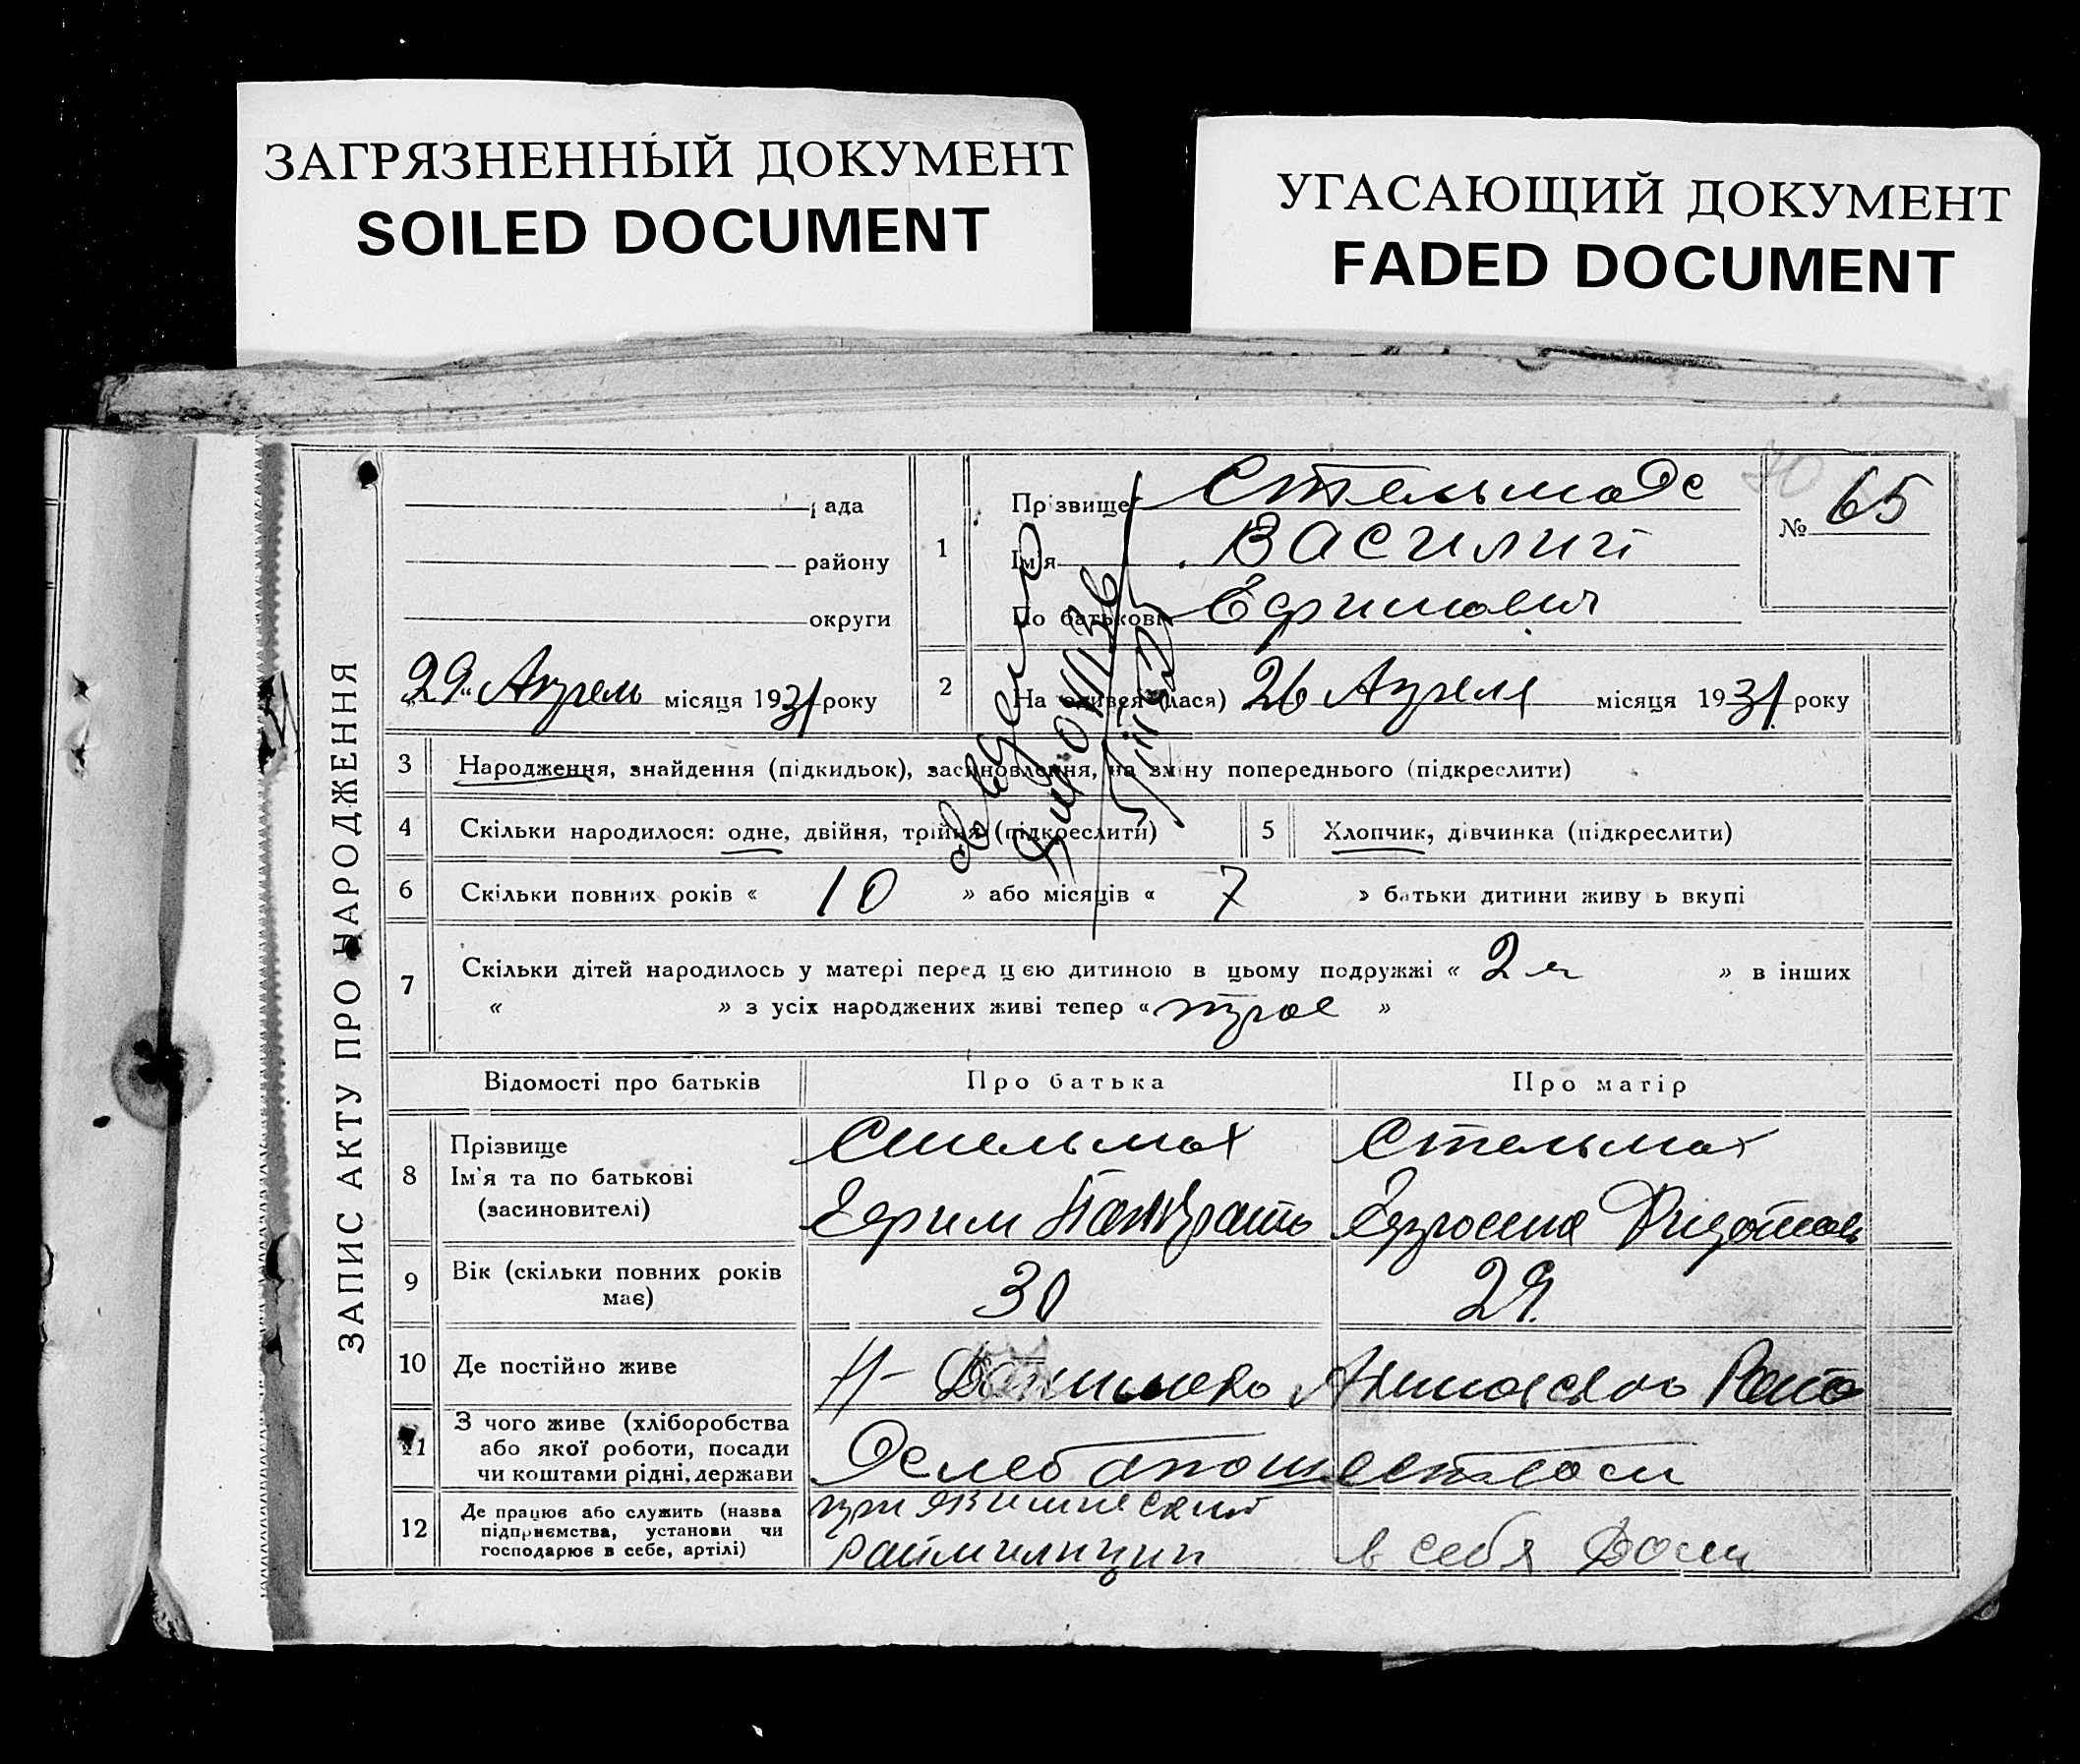 ЗАГРЯЗНЕННЫЙ ДОКУМЕНТ
SOILED DOCUMENT
УГАСАЮЩИЙ ДОКУМЕНТ
FADED DOCUMENT
ЗАПИС АКТУ ПРО НАРОДЖЕННЯ
рада
району
округи
„29“ Апрель місяця 1931 року
1
Прізвище Стельмах
Ім'я Василий
По батькові Ефимович
№ 65
2
Народився (лася) 26 Апреля місяця 1931 року
3 Народження, знайдення (підкидьок), засиновлення, на зміну попереднього (підкреслити)
4 Скільки народилося: одне, двійня, трійня (підкреслити)
5 Хлопчик, дівчинка (підкреслити)
6 Скільки повних років « 10 » або місяців « 7 » батьки дитини живуть вкупі
7 Скільки дітей народилось у матері перед цією дитиною в цьому подружжі « 2 » в інших
« » з усіх народжених живі тепер « трое »
Відомості про батьків Про батька Про матір
8 Прізвище
Ім'я та по батькові
(засиновителі)
Стельмах
Ефим
Стельмах
9 Вік (скільки повних років
має)
30
29
10 Де постійно живе
11 З чого живе (хліборобства
або якої роботи, посади
чи коштами рідні, держави
12 Де працює або служить (назва
підприємства, установи чи
господарює в себе, артілі)
при
Раймилиции
в себя Дома